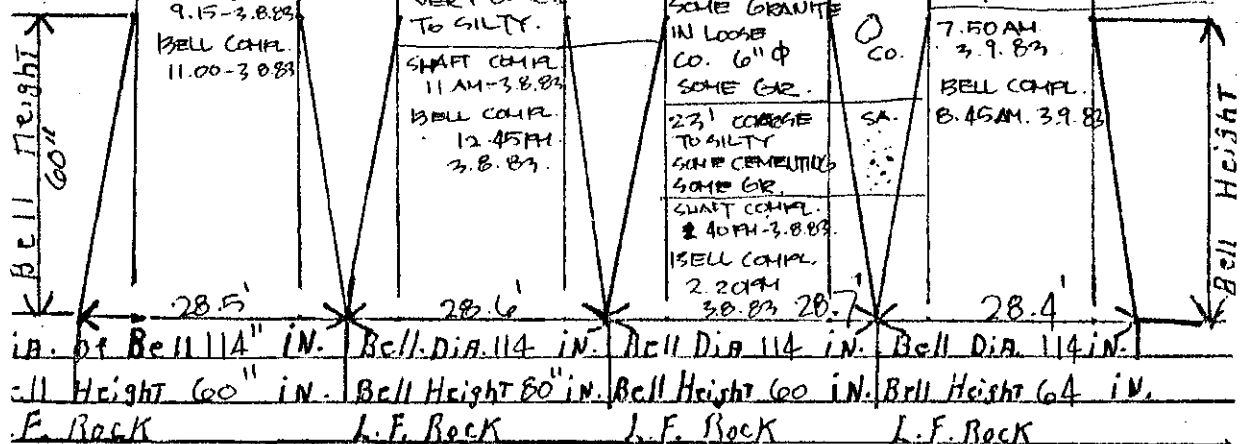 9.15-3.8.83
BELL COMPL.
11.00-3.8.83
Bell Height
60"
28.5'
TO SILTY.
SHAFT COMPL.
11 AM-3.8.83
BELL COMPL.
12.45PM.
3.8.83.
28.6'
SOME GRANITE
IN LOOSE
CO. 6" Φ
SOME GR.
CO.
23' COARSE
TO SILTY
SOME CEMENTING
SOME GR.
SA.
SHAFT COMPL.
40 PM-3.8.83.
BELL COMPL.
2.20PM
3.8.83
28.7'
7.50 AM.
3.9.83.
BELL COMPL.
8.45AM. 3.9.83
28.4'
Bell Height
iA. of Bell 114" iN. Bell. DiA. 114 iN. Bell DiA 114 iN. Bell DiA. 114 iN.
ell Height 60" iN. Bell Height 80" iN. Bell Height 60 iN. Bell Height 64 iN.
.F. Rock L.F. Rock L.F. Rock L.F. Rock